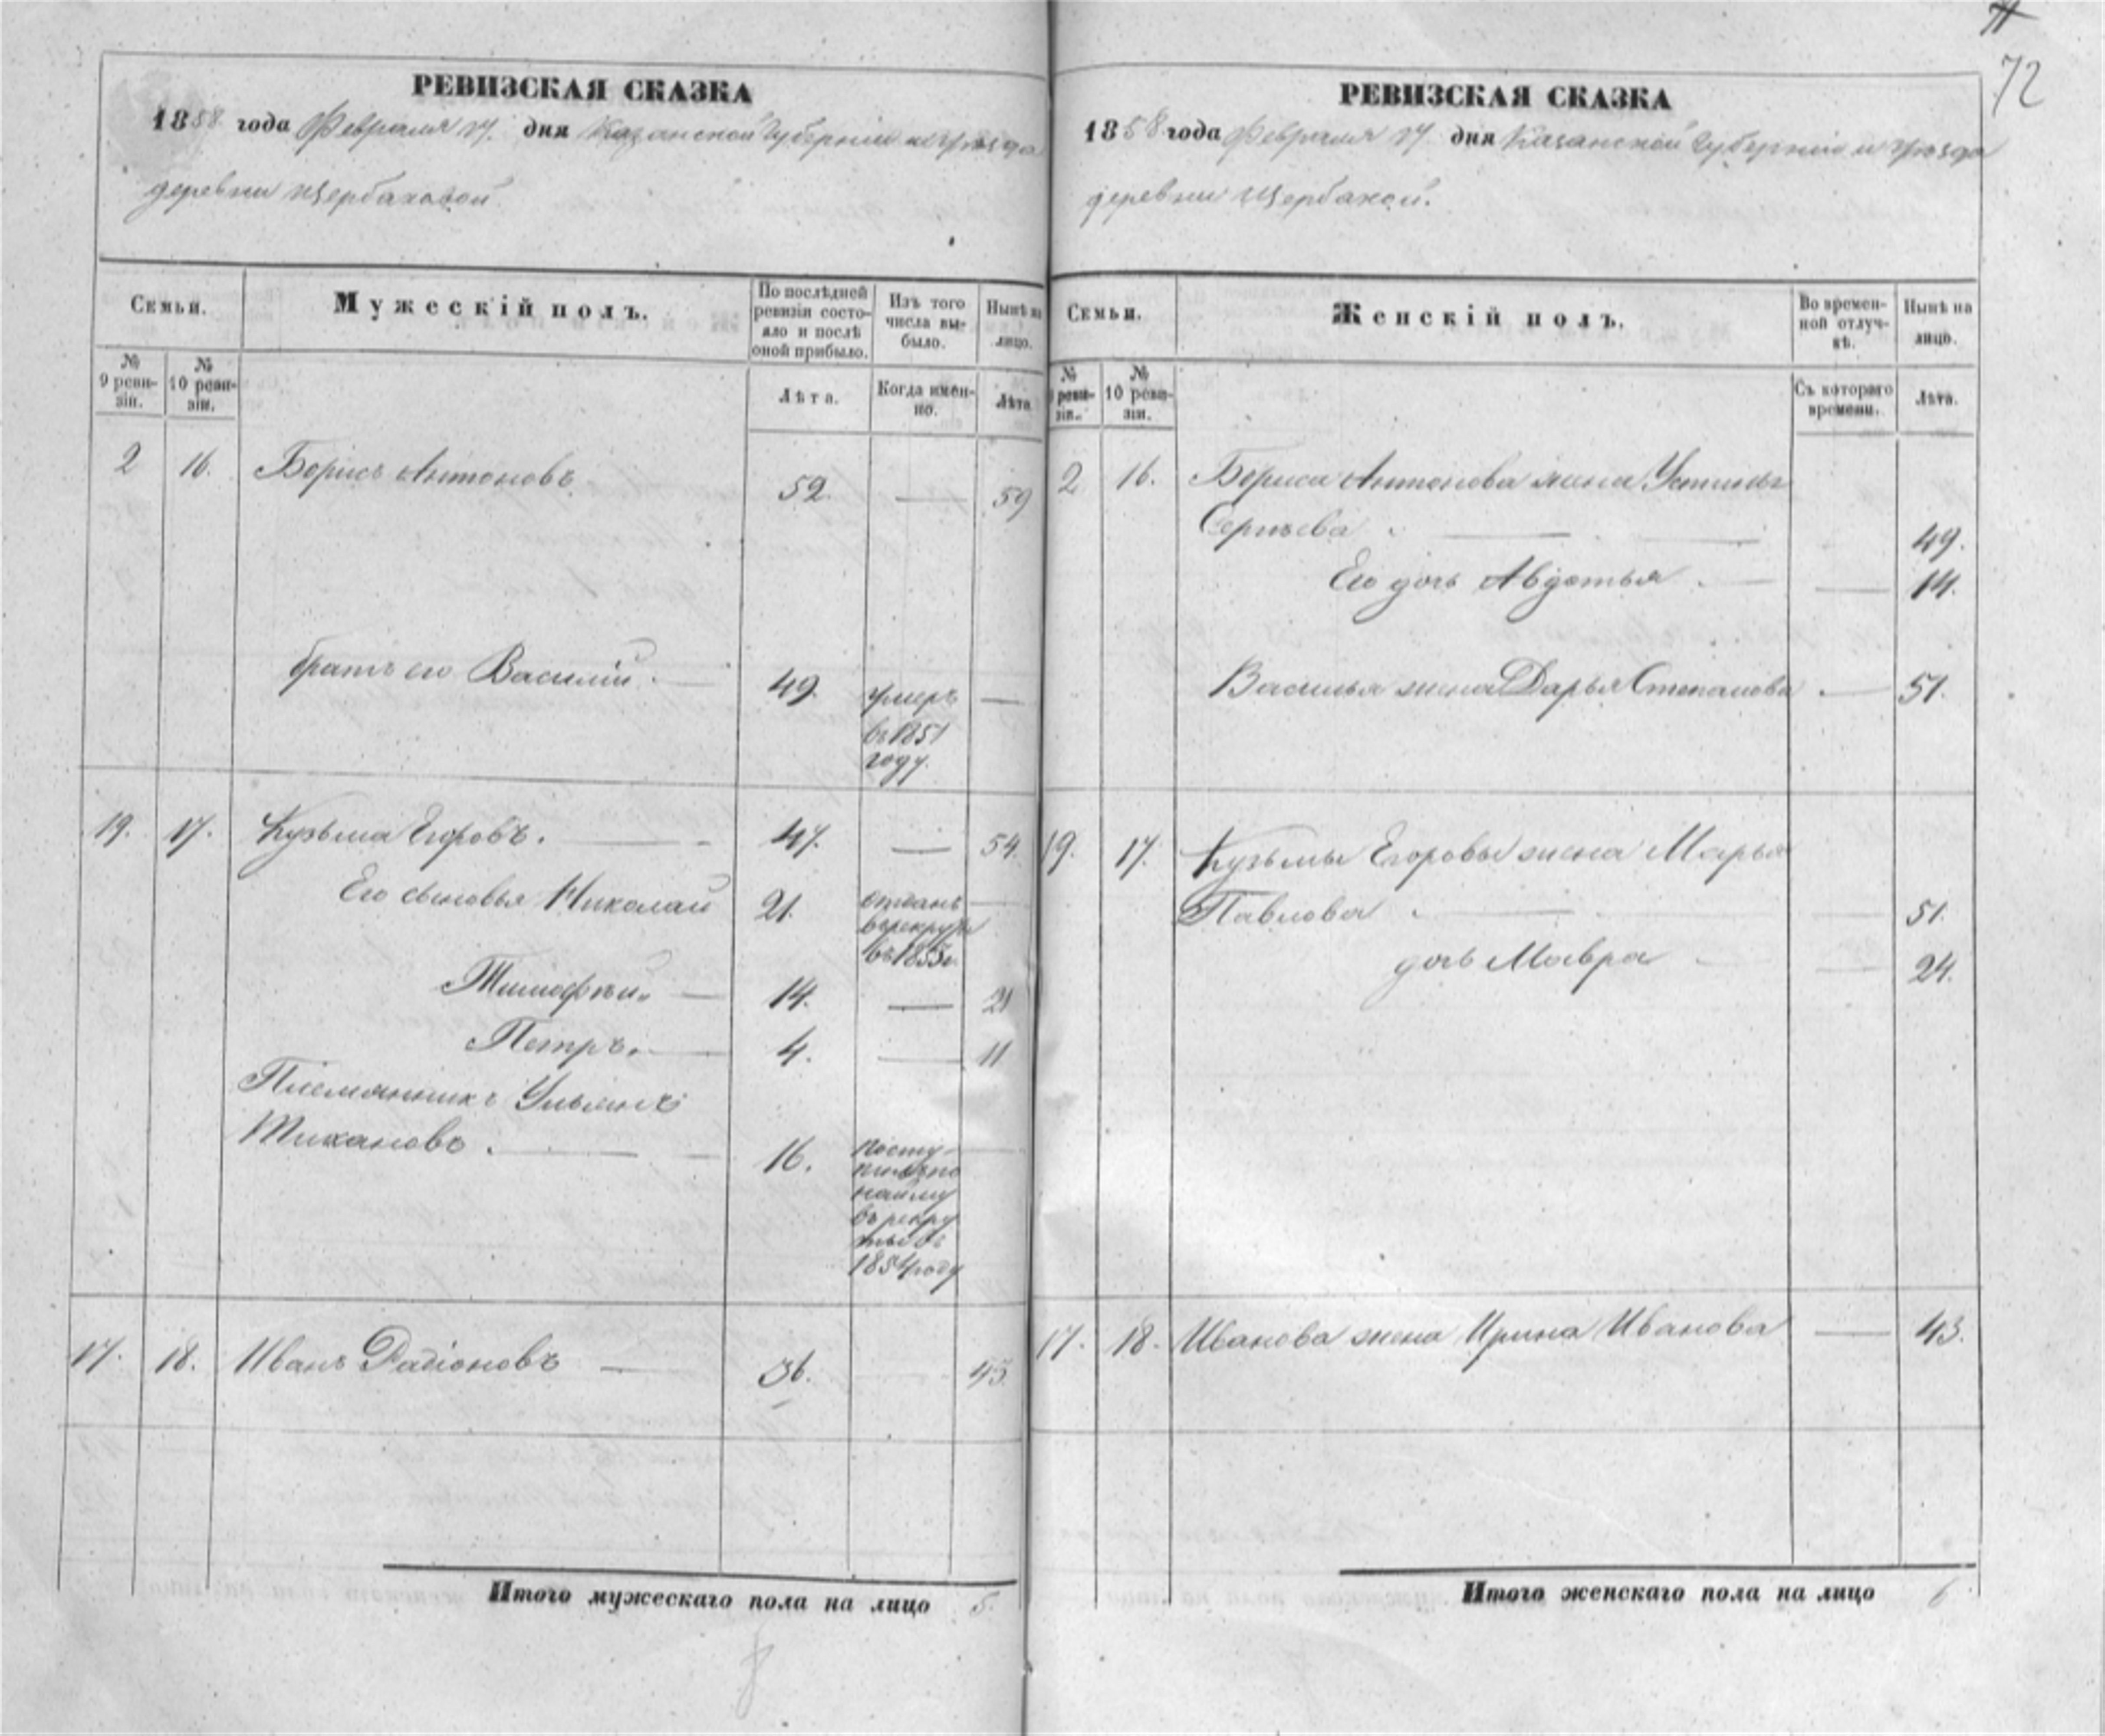 72
РЕВИЗСКАЯ СКАЗКА
1858 года Февраля 17. дня Казанской Губерніи и уѣзда
деревни Щербаковой
Семьи.
Мужескій полъ.
По послѣдней ревизіи состояло и послѣ оной прибыло.
Изъ того числа выбыло.
Нынѣ на лицо.
№ 9 ревизіи.
№ 10 ревизіи.
Лѣта.
Когда именно.
Лѣта
2 16. Борисъ Антоновъ 52. — 59
братъ его Василій. — 49. умеръ —
въ 1851
году.
19. 17. Кузьма Егоровъ. — 47. — 54.
Его сыновья Николай 21. отданъ —
въ рекруты
въ 1855 г.
Тимофѣй. — 14. — 21
Петръ. — 4. — 11
Племянникъ Ульянъ
Тихановъ. — 16. посту-
пилъ по
найму
въ рекру
ты въ
1854 году
17. 18. Иванъ Радіоновъ — 36. 43.
Итого мужескаго пола на лицо 5.
РЕВИЗСКАЯ СКАЗКА
1858 года Февраля 17 дня Казанской Губерніи и уѣзда
деревни Щербакой.
Семьи.
Женскій полъ.
Во временной отлучкѣ.
Нынѣ на лицо.
№ 9 ревизіи.
№ 10 ревизіи.
Съ котораго времени.
Лѣта.
2 16. Бориса Антонова жена Устинья
Сергѣева — 49.
Его дочь Авдотья. — 14.
Василья жена Дарья Степанова — 51.
19. 17. Кузьмы Егоровы жена Марья
Павлова — 51.
дочь Мавра — 24.
17. 18. Иванова жена Ирина Иванова — 43.
Итого женскаго пола на лицо 6